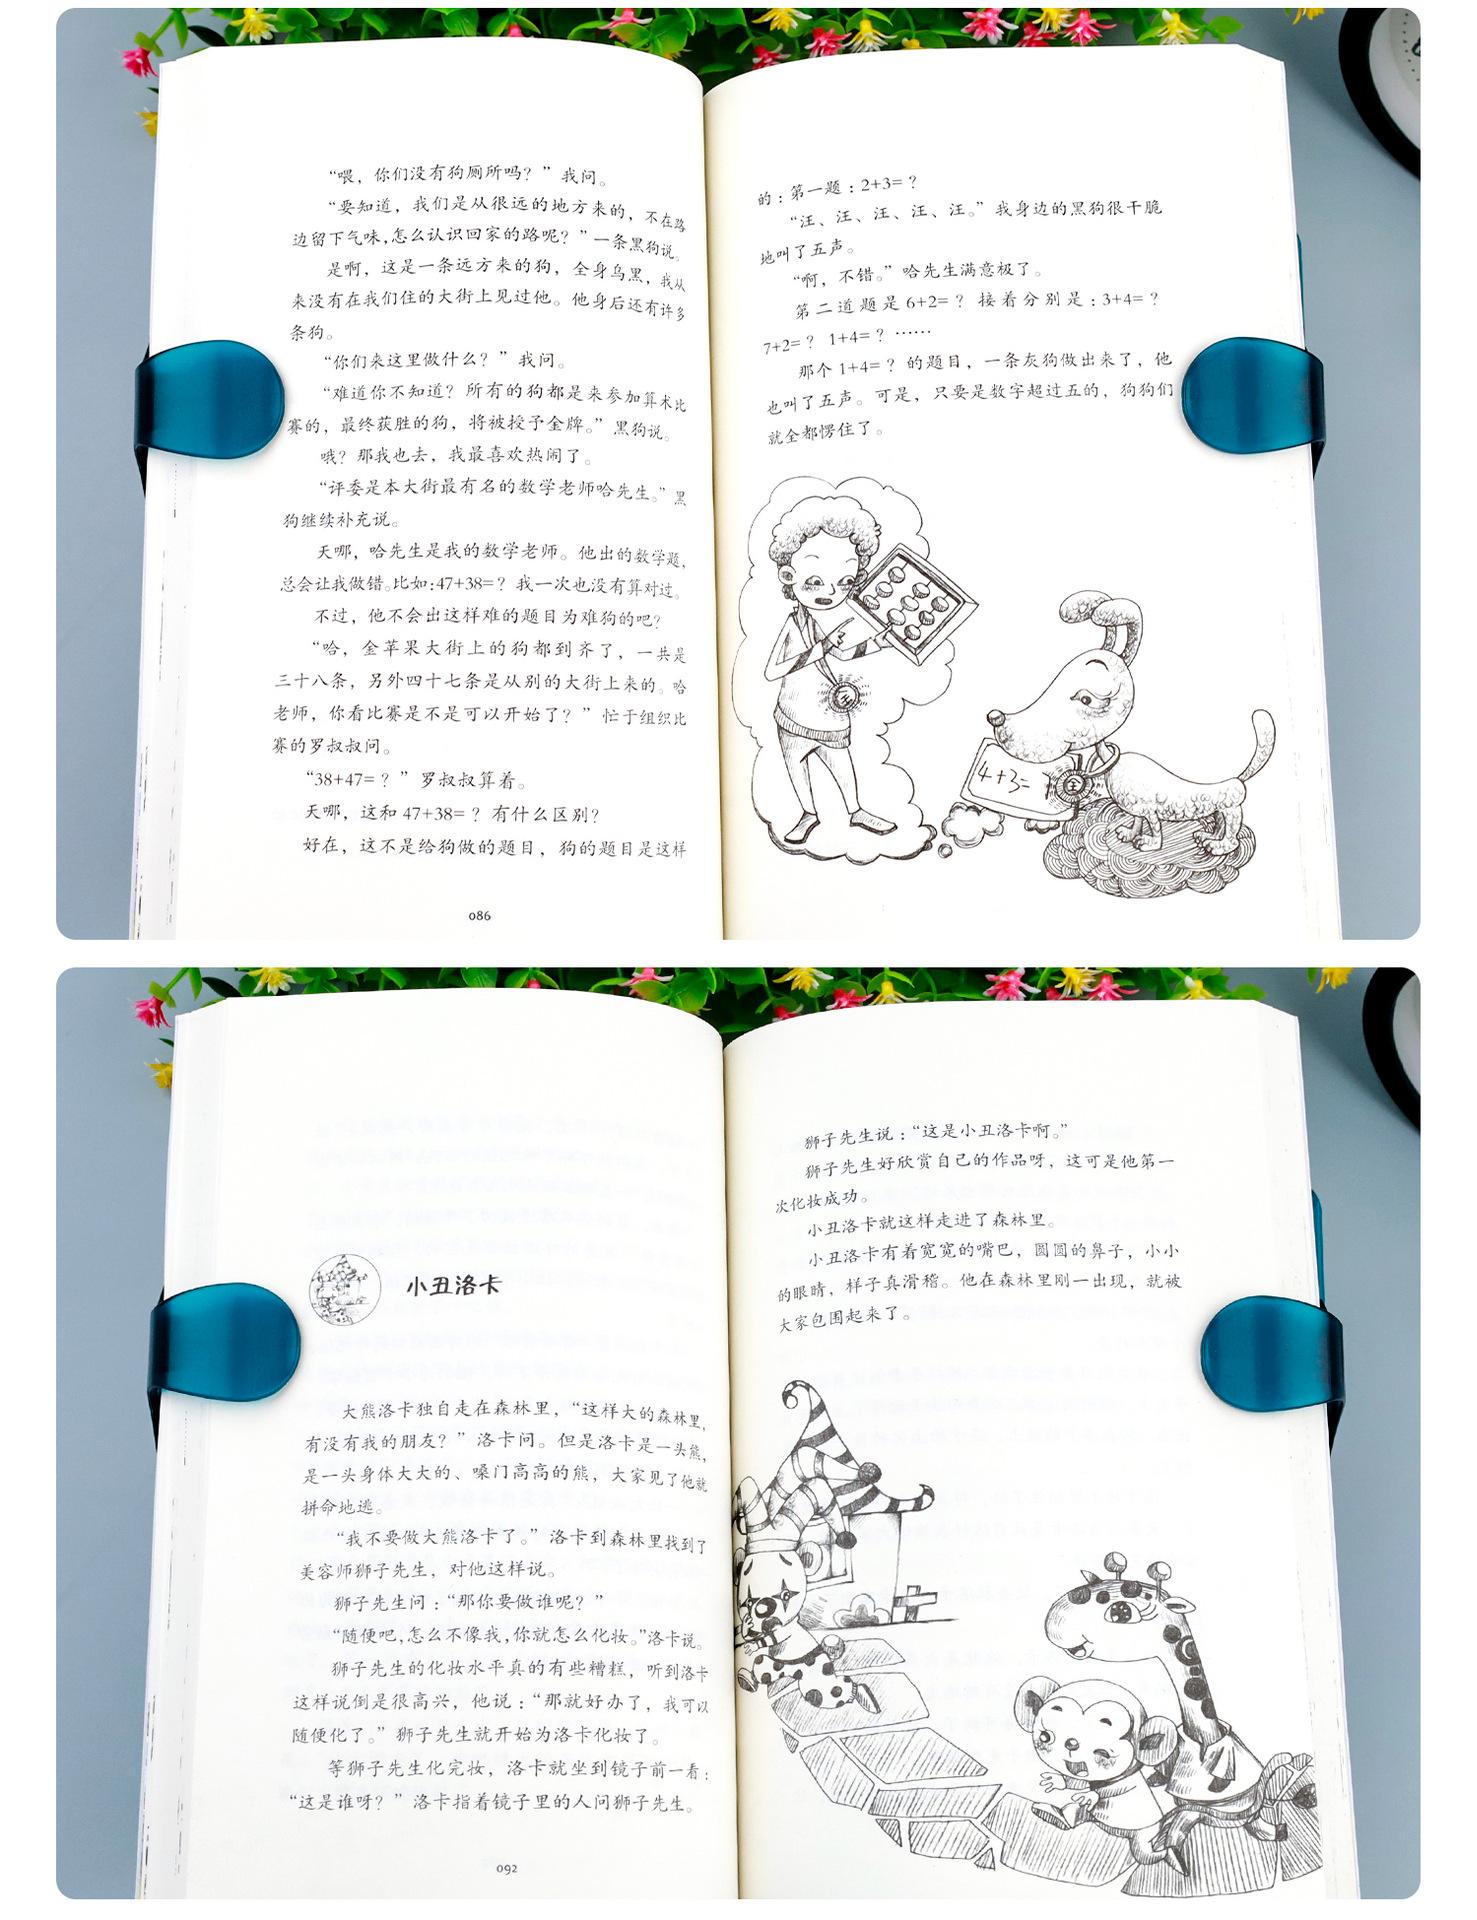 “喂，你们没有狗厕所吗？”我问。
“要知道，我们是从很远的地方来的，不在路
边留下气味，怎么认识回家的路呢？”一条黑狗说。
是啊，这是一条远方来的狗，全身乌黑，我从
来没有在我们住的大街上见过他。他身后还有许多
条狗。
“你们来这里做什么？”我问。
“难道你不知道？所有的狗都是来参加算术比
赛的，最终获胜的狗，将被授予金牌。”黑狗说。
哦？那我也去，我最喜欢热闹了。
“评委是本大街最有名的数学老师哈先生。”黑
狗继续补充说。
天哪，哈先生是我的数学老师。他出的数学题，
总会让我做错。比如：47+38=？我一次也没有算对过。
不过，他不会出这样难的题目为难狗的吧？
“哈，金苹果大街上的狗都到齐了，一共是
三十八条，另外四十七条是从别的大街上来的。哈
老师，你看比赛是不是可以开始了？”忙于组织比
赛的罗叔叔问。
“38+47=？”罗叔叔算着。
天哪，这和47+38=？有什么区别？
好在，这不是给狗做的题目，狗的题目是这样
086
的：第一题：2+3=？
“汪、汪、汪、汪、汪。”我身边的黑狗很干脆
地叫了五声。
“啊，不错。”哈先生满意极了。
第二道题是6+2=？接着分别是：3+4=？
7+2=？1+4=？……
那个1+4=？的题目，一条灰狗做出来了，他
也叫了五声。可是，只要是数字超过五的，狗狗们
就全都愣住了。
金
4+3=
金
小丑洛卡
大熊洛卡独自走在森林里，“这样大的森林里，
有没有我的朋友？”洛卡问。但是洛卡是一头熊，
是一头身体大大的、嗓门高高的熊，大家见了他就
拼命地逃。
“我不要做大熊洛卡了。”洛卡到森林里找到了
美容师狮子先生，对他这样说。
狮子先生问：“那你要做谁呢？”
“随便吧，怎么不像我，你就怎么化妆。”洛卡说。
狮子先生的化妆水平真的有些糟糕，听到洛卡
这样说倒是很高兴，他说：“那就好办了，我可以
随便化了。”狮子先生就开始为洛卡化妆了。
等狮子先生化完妆，洛卡就坐到镜子前一看：
“这是谁呀？”洛卡指着镜子里的人问狮子先生。
092
狮子先生说：“这是小丑洛卡啊。”
狮子先生好欣赏自己的作品呀，这可是他第一
次化妆成功。
小丑洛卡就这样走进了森林里。
小丑洛卡有着宽宽的嘴巴，圆圆的鼻子，小小
的眼睛，样子真滑稽。他在森林里刚一出现，就被
大家包围起来了。